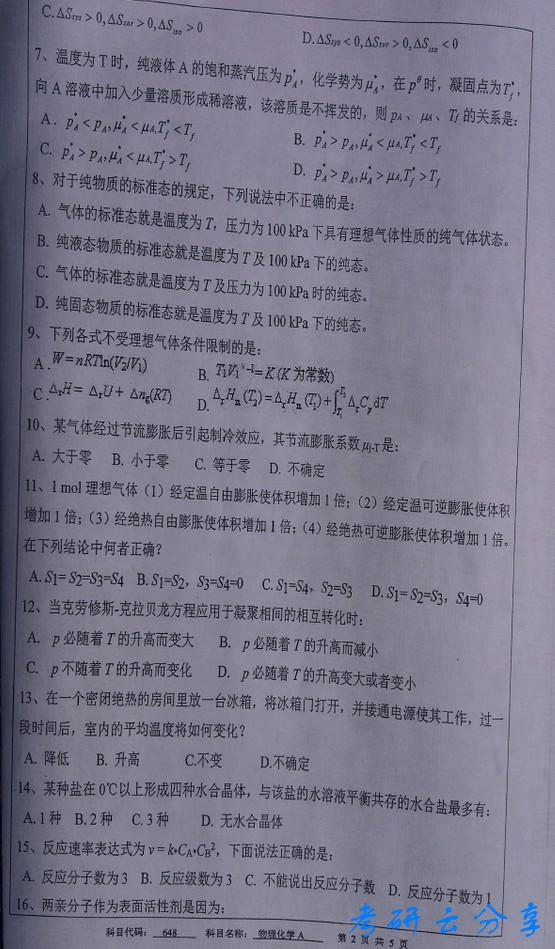 C. ΔS_sys > 0, ΔS_sur > 0, ΔS_iso > 0 D. ΔS_sys < 0, ΔS_sur > 0, ΔS_iso < 0
7、温度为 T 时，纯液体 A 的饱和蒸汽压为 p_A^*，化学势为 μ_A^*，在 p^θ 时，凝固点为 T_f^*，
向 A 溶液中加入少量溶质形成稀溶液，该溶质是不挥发的，则 p_A、μ_A、T_f 的关系是:
A. p_A^* < p_A, μ_A^* < μ_A, T_f^* < T_f B. p_A^* > p_A, μ_A^* < μ_A, T_f^* < T_f
C. p_A^* > p_A, μ_A^* < μ_A, T_f^* > T_f D. p_A^* > p_A, μ_A^* > μ_A, T_f^* > T_f
8、对于纯物质的标准态的规定，下列说法中不正确的是:
A. 气体的标准态就是温度为 T，压力为 100 kPa 下具有理想气体性质的纯气体状态。
B. 纯液态物质的标准态就是温度为 T 及 100 kPa 下的纯态。
C. 气体的标准态就是温度为 T 及压力为 100 kPa 时的纯态。
D. 纯固态物质的标准态就是温度为 T 及 100 kPa 下的纯态。
9、下列各式不受理想气体条件限制的是:
A. W = nRTln(V₂/V₁) B. T₁V₁^γ⁻¹= K (K 为常数)
C. Δ_rH = Δ_rU + Δn_g(RT) D. Δ_rH_m(T₂) = Δ_rH_m(T₁) + ∫_T₁^T₂ Δ_rC_p dT
10、某气体经过节流膨胀后引起制冷效应，其节流膨胀系数 μ_J-T 是:
A. 大于零 B. 小于零 C. 等于零 D. 不确定
11、1 mol 理想气体（1）经定温自由膨胀使体积增加 1 倍；（2）经定温可逆膨胀使体积
增加 1 倍；（3）经绝热自由膨胀使体积增加 1 倍；（4）经绝热可逆膨胀使体积增加 1 倍。
在下列结论中何者正确？
A. S1= S2=S3=S4 B. S1=S2，S3=S4=0 C. S1=S4，S2=S3 D. S1= S2=S3，S4=0
12、当克劳修斯-克拉贝龙方程应用于凝聚相间的相互转化时:
A. p 必随着 T 的升高而变大 B. p 必随着 T 的升高而减小
C. p 不随着 T 的升高而变化 D. p 必随着 T 的升高变大或者变小
13、在一个密闭绝热的房间里放一台冰箱，将冰箱门打开，并接通电源使其工作，过一
段时间后，室内的平均温度将如何变化？
A. 降低 B. 升高 C.不变 D.不确定
14、某种盐在 0℃以上形成四种水合晶体，与该盐的水溶液平衡共存的水合盐最多有:
A. 1 种 B. 2 种 C. 3 种 D. 无水合晶体
15、反应速率表达式为 v = k•C_A•C_B²，下面说法正确的是:
A. 反应分子数为 3 B. 反应级数为 3 C. 不能说出反应分子数 D. 反应分子数为 1
16、两亲分子作为表面活性剂是因为:
考研云分享
科目代码: 648 科目名称: 物理化学 A 第 2 页 共 5 页